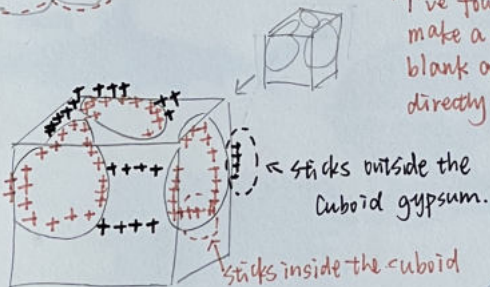 make a
blank a
directly
sticks outside the
cuboid gypsum.
sticks inside the cuboid